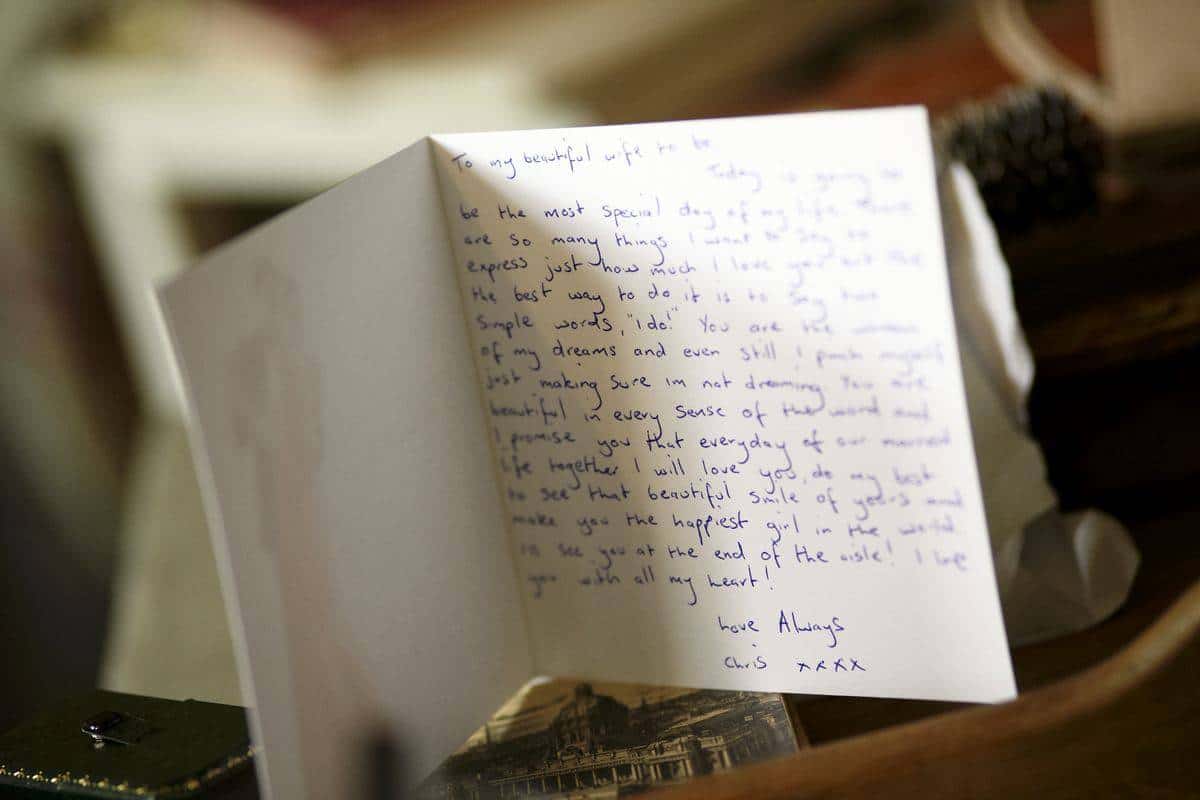 To my beautiful wife to be
Today is going to
be the most special day of my life. There
are so many things I want to say to
express just how much I love you but the
the best way to do it is to say two
simple words, "I do!" You are the
of my dreams and even still I pinch myself
just making sure im not dreaming. You are
beautiful in every sense of the word and
I promise you that everyday of our married
life together I will love you, do my best
to see that beautiful smile of yours and
make you the happiest girl in the world.
see you at the end of the aisle! I love
you with all my heart!
Love Always
Chris xxxx